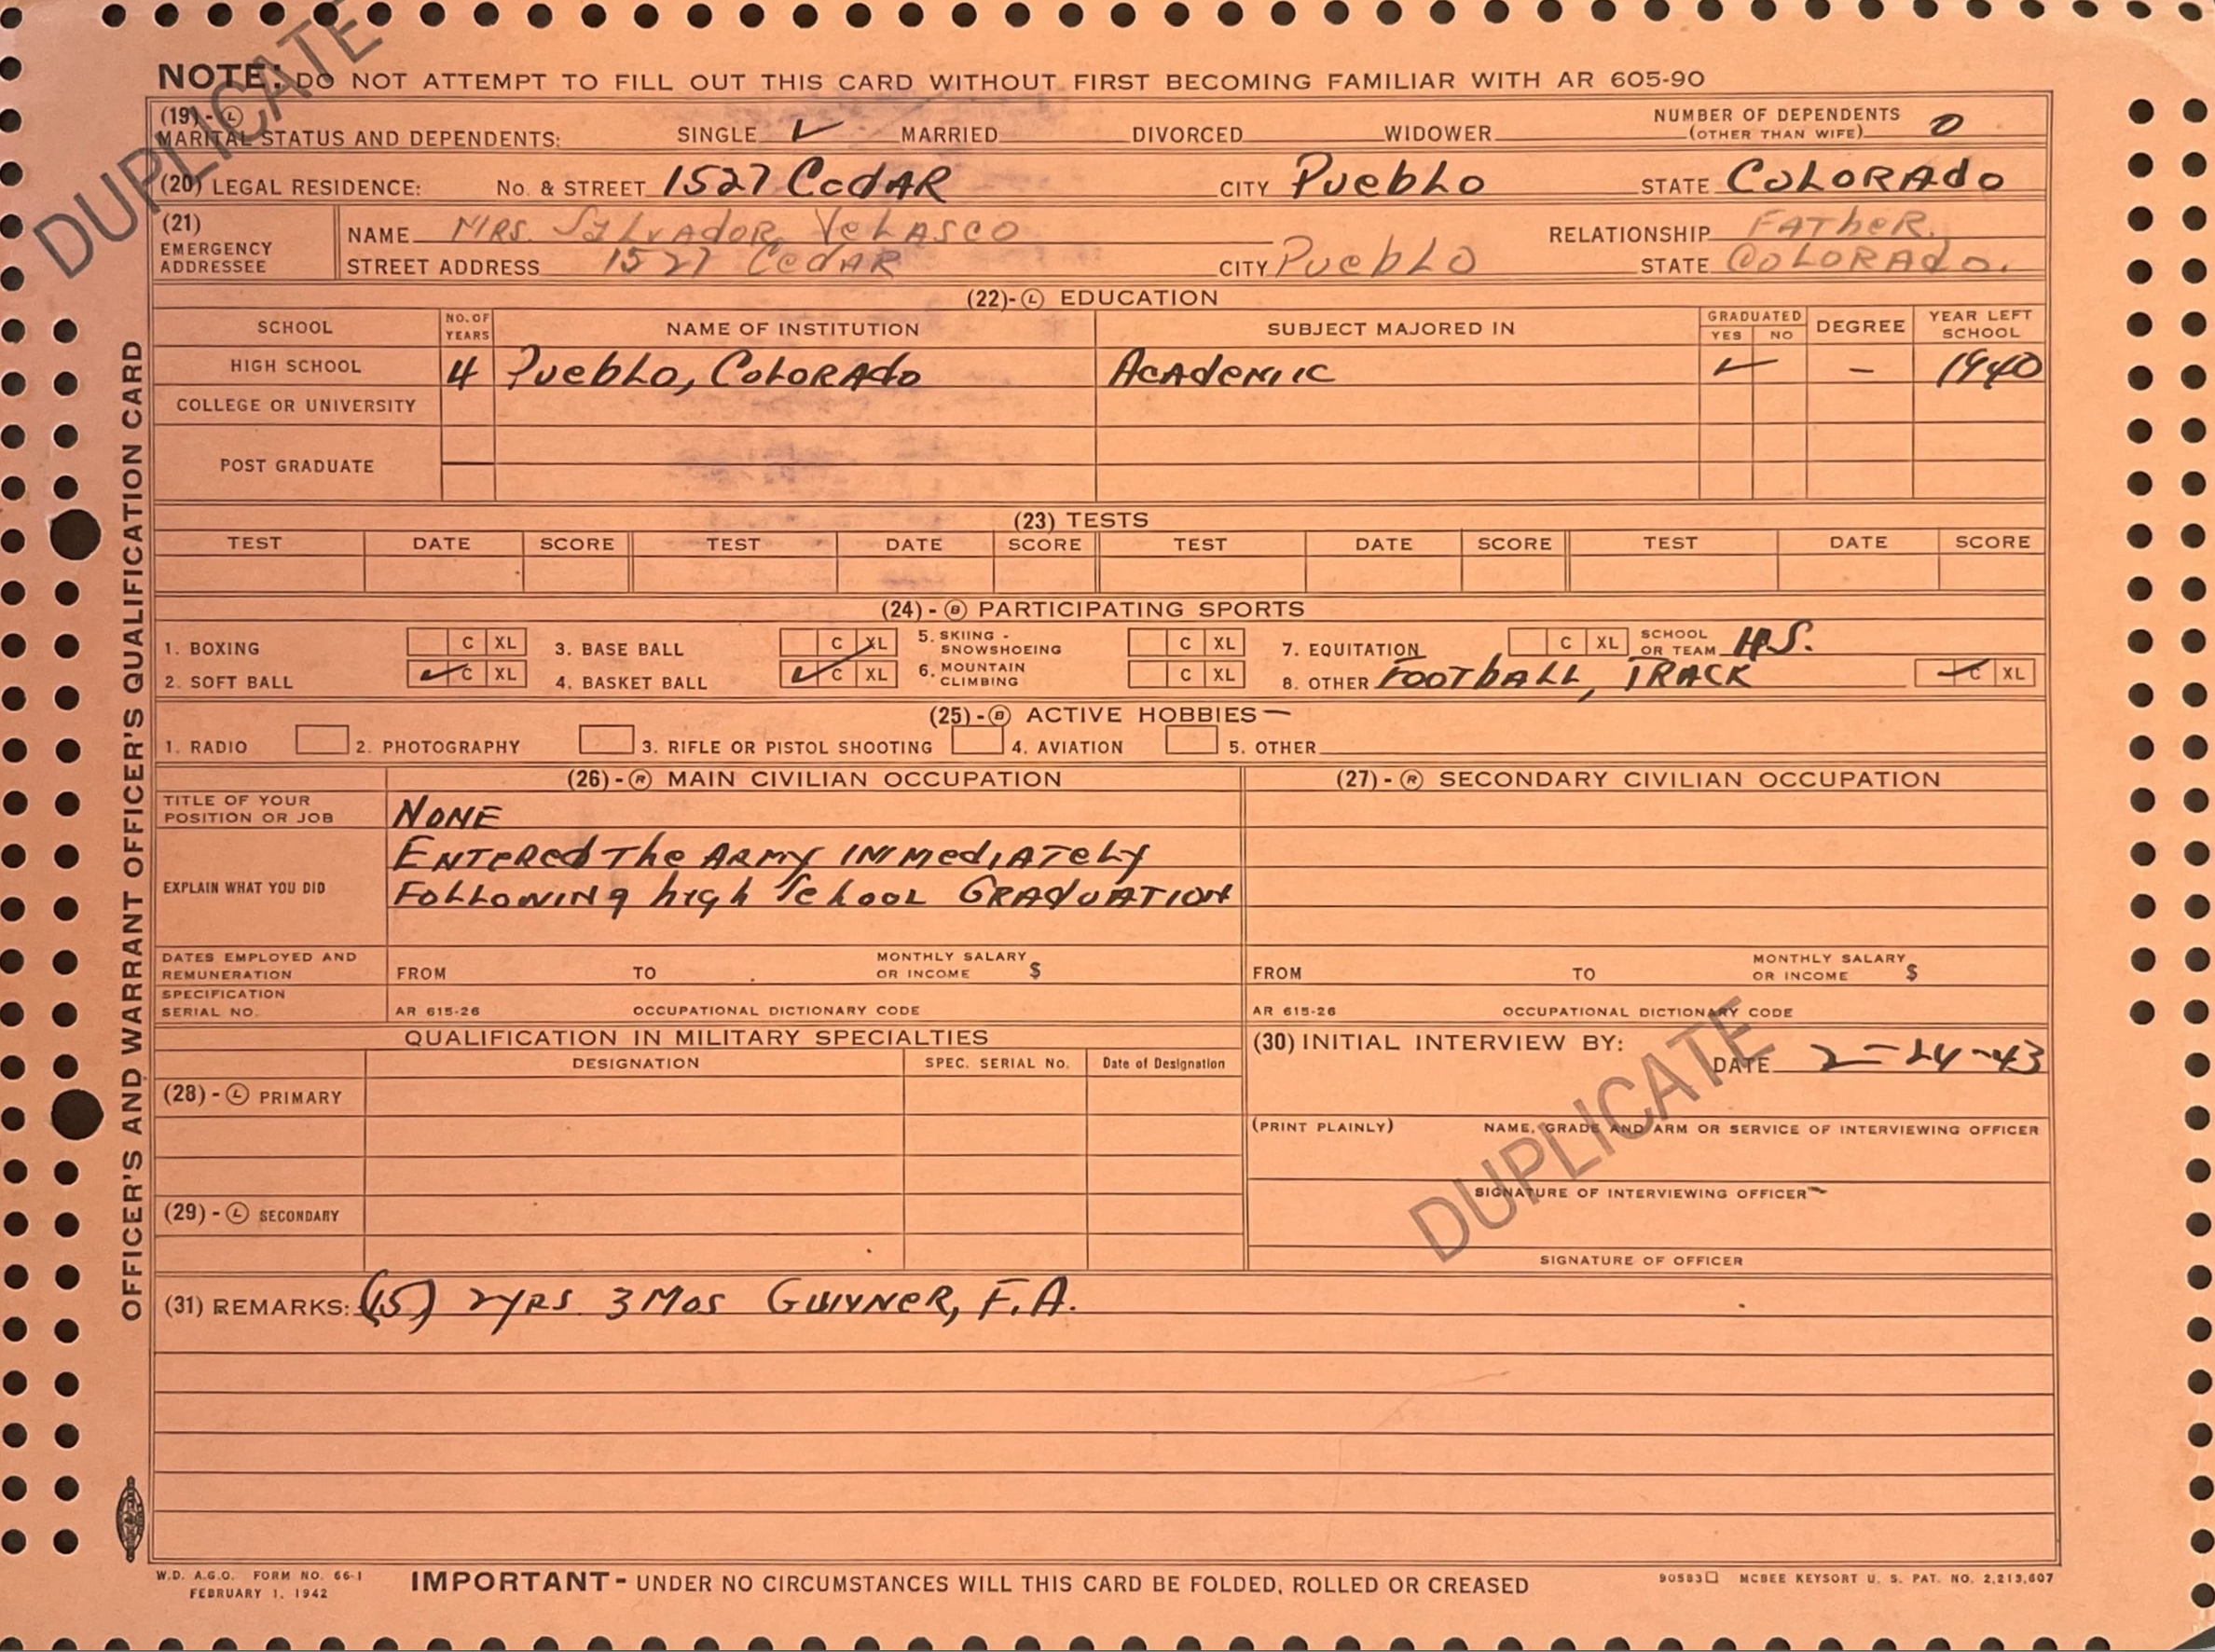 DUPLICATE
NOTE: DO NOT ATTEMPT TO FILL OUT THIS CARD WITHOUT FIRST BECOMING FAMILIAR WITH AR 605-90
(19)-Ⓛ MARITAL STATUS AND DEPENDENTS: SINGLE ✓ MARRIED DIVORCED WIDOWER NUMBER OF DEPENDENTS (OTHER THAN WIFE) 0
(20) LEGAL RESIDENCE: No. & STREET 1527 CedAR CITY PuebLo STATE CoLoRAdo
(21) EMERGENCY ADDRESSEE
NAME MRS. SALVADOR VeLASCO RELATIONSHIP FATheR.
STREET ADDRESS 1527 CedAR CITY PuebLo STATE CoLoRAdo.
(22)-Ⓛ EDUCATION
SCHOOL NO. OF YEARS NAME OF INSTITUTION SUBJECT MAJORED IN GRADUATED YES NO DEGREE YEAR LEFT SCHOOL
HIGH SCHOOL 4 PuebLo, CoLoRAdo AcAdeMic ✓ – 1940
COLLEGE OR UNIVERSITY
POST GRADUATE
(23) TESTS
TEST DATE SCORE TEST DATE SCORE TEST DATE SCORE TEST DATE SCORE
(24)-Ⓑ PARTICIPATING SPORTS
1. BOXING C XL 3. BASE BALL C XL 5. SKIING - SNOWSHOEING C XL 7. EQUITATION C XL SCHOOL OR TEAM H.S.
2. SOFT BALL ✓ C XL 4. BASKET BALL ✓ C XL 6. MOUNTAIN CLIMBING C XL 8. OTHER FOOTbALL, TRACK ✓ C XL
(25)-Ⓑ ACTIVE HOBBIES –
1. RADIO 2. PHOTOGRAPHY 3. RIFLE OR PISTOL SHOOTING 4. AVIATION 5. OTHER
(26)-Ⓡ MAIN CIVILIAN OCCUPATION (27)-Ⓡ SECONDARY CIVILIAN OCCUPATION
TITLE OF YOUR POSITION OR JOB NONE
EXPLAIN WHAT YOU DID ENTeRed The ARMY IMMediATeLy
FoLLowINg high School GRAduATION
DATES EMPLOYED AND REMUNERATION FROM TO MONTHLY SALARY OR INCOME $ FROM TO MONTHLY SALARY OR INCOME $
SPECIFICATION SERIAL NO. AR 615-26 OCCUPATIONAL DICTIONARY CODE AR 615-26 OCCUPATIONAL DICTIONARY CODE
QUALIFICATION IN MILITARY SPECIALTIES
DESIGNATION SPEC. SERIAL No. Date of Designation
(28)-Ⓛ PRIMARY
(29)-Ⓛ SECONDARY
(30) INITIAL INTERVIEW BY:
DATE 2-24-43
(PRINT PLAINLY) NAME, GRADE AND ARM OR SERVICE OF INTERVIEWING OFFICER
SIGNATURE OF INTERVIEWING OFFICER
SIGNATURE OF OFFICER
DUPLICATE
(31) REMARKS: (15) 2yRS 3Mos GuNNeR, F.A.
OFFICER'S AND WARRANT OFFICER'S QUALIFICATION CARD
W.D. A.G.O. FORM NO. 66-1
FEBRUARY 1, 1942
IMPORTANT - UNDER NO CIRCUMSTANCES WILL THIS CARD BE FOLDED, ROLLED OR CREASED
90583 MCBEE KEYSORT U. S. PAT. NO. 2,213,607